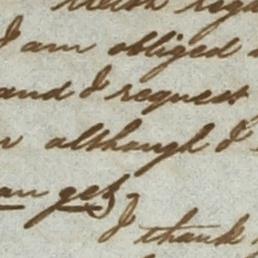 I am obliged
and I request
although I
get?
I thank